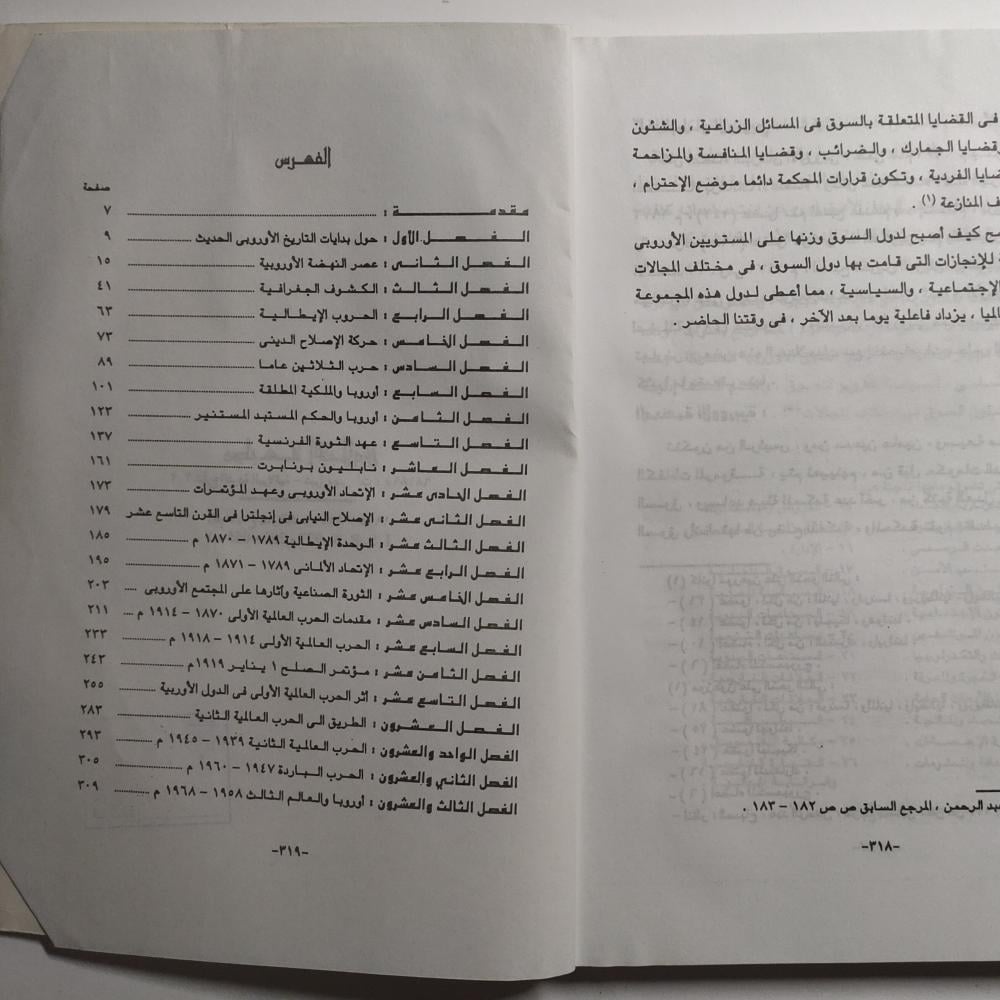 فى القضايا المتعلقة بالسوق فى المسائل الزراعية ، والشئون
وقضايا الجمارك ، والضرائب ، وقضايا المنافسة والمزاحمة
الفردية ، وتكون قرارات المحكمة دائما موضع الإحترام ،
المنازعة (١) .
كيف أصبح لدول السوق وزنها على المستويين الأوروبى
للإنجازات التى قامت بها دول السوق ، فى مختلف المجالات
الإجتماعية ، والسياسية ، مما أعطى لدول هذه المجموعة
يزداد فاعلية يوما بعد الآخر ، فى وقتنا الحاضر .
عبد الرحمن ، المرجع السابق ص ص ١٨٢ – ١٨٣ .
-٣١٨-
الفهرس
صفحة
مقدمة : ٧
الفصل الأول : حول بدايات التاريخ الأوروبى الحديث ٩
الفصل الثانى : عصر النهضة الأوروبية ١٥
الفصل الثالث : الكشوف الجغرافية ٤١
الفصل الرابع : الحروب الإيطالية ٦٣
الفصل الخامس : حركة الإصلاح الدينى ٧٣
الفصل السادس : حرب الثلاثين عاما ٨٩
الفصل السابع : أوروبا والملكية المطلقة ١٠١
الفصل الثامن : أوروبا والحكم المستبد المستنير ١٢٣
الفصل التاسع : عهد الثورة الفرنسية ١٣٧
الفصل العاشر : نابليون بونابرت ١٦١
الفصل الحادى عشر : الإتحاد الأوروبى وعهد المؤتمرات ١٧٣
الفصل الثانى عشر : الإصلاح النيابى فى إنجلترا فى القرن التاسع عشر ١٧٩
الفصل الثالث عشر : الوحدة الإيطالية ١٧٨٩ – ١٨٧٠ م ١٨٥
الفصل الرابع عشر : الإتحاد الألمانى ١٧٨٩ – ١٨٧١ م ١٩٥
الفصل الخامس عشر : الثورة الصناعية وآثارها على المجتمع الأوروبى ٢٠٣
الفصل السادس عشر : مقدمات الحرب العالمية الأولى ١٨٧٠ – ١٩١٤ م ٢١١
الفصل السابع عشر : الحرب العالمية الأولى ١٩١٤ – ١٩١٨ م ٢٣٣
الفصل الثامن عشر : مؤتمر الصلح ١ يناير ١٩١٩م ٢٤٣
الفصل التاسع عشر : أثر الحرب العالمية الأولى فى الدول الأوربية ٢٥٥
الفصل العشرون : الطريق الى الحرب العالمية الثانية ٢٨٣
الفصل الواحد والعشرون : الحرب العالمية الثانية ١٩٣٩ – ١٩٤٥ م ٢٩٣
الفصل الثاني والعشرون : الحرب الباردة ١٩٤٧ – ١٩٦٠ م ٣٠٥
الفصل الثالث والعشرون : أوروبا والعالم الثالث ١٩٥٨ – ١٩٦٨ م ٣٠٩
-٣١٩-